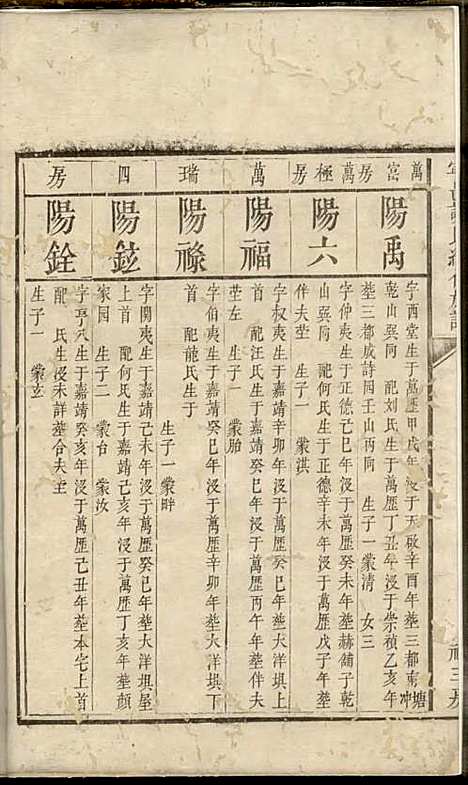 萬富房
陽禹
字西堂生于萬歷甲戌年没于天啟辛酉年塟三都東塘冲
乾山巽向 配刘氏生于萬歷丁丑年没于崇禎乙亥年
塟三都成詩园壬山丙向 生子一蒙清 女三
萬極房
陽六
字仲夷生于正德己巳年没于萬歷癸未年塟赫舖子乾
山巽向 配何氏生于正德辛未年没于萬歷戊子年塟
伴夫塋 生子一 蒙淇
萬瑞四房
陽福
字权夷生于嘉靖辛卯年没于萬歷癸巳年塟大洋垻上
首 配汪氏生于嘉靖癸巳年没于萬歷丙午年塟伴夫
塋左 生子一 蒙胎
陽祿
字伯夷生于嘉靖癸巳年没于萬歷辛卯年塟大洋垻下
首 配龍氏生于
生子一蒙畔
陽鉉
字閞夷生于嘉靖己未年没于萬歷癸巳年塟大洋垻屋
上首 配何氏生于嘉靖己亥年没于萬歷丁亥年塟顏
家园 生子二 蒙台 蒙汝
陽銓
字亨八生于嘉靖癸亥年没于萬歷己丑年塟本宅上首
配 氏生没未詳塟合夫塋
生子一 蒙玄